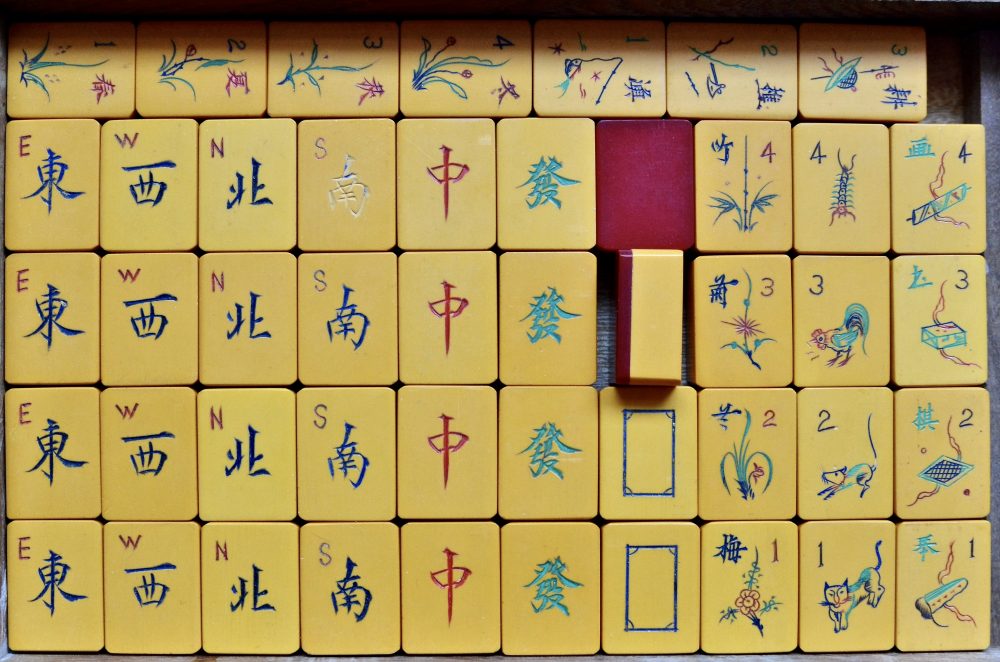 1 春 2 夏 3 秋 4 冬 1 漁 2 樵 3 耕
E 東 W 西 N 北 S 南 中 發 竹 4 4 画 4
E 東 W 西 N 北 S 南 中 發 菊 3 3 书 3
E 東 W 西 N 北 S 南 中 發 兰 2 2 棋 2
E 東 W 西 N 北 S 南 中 發 梅 1 1 琴 1